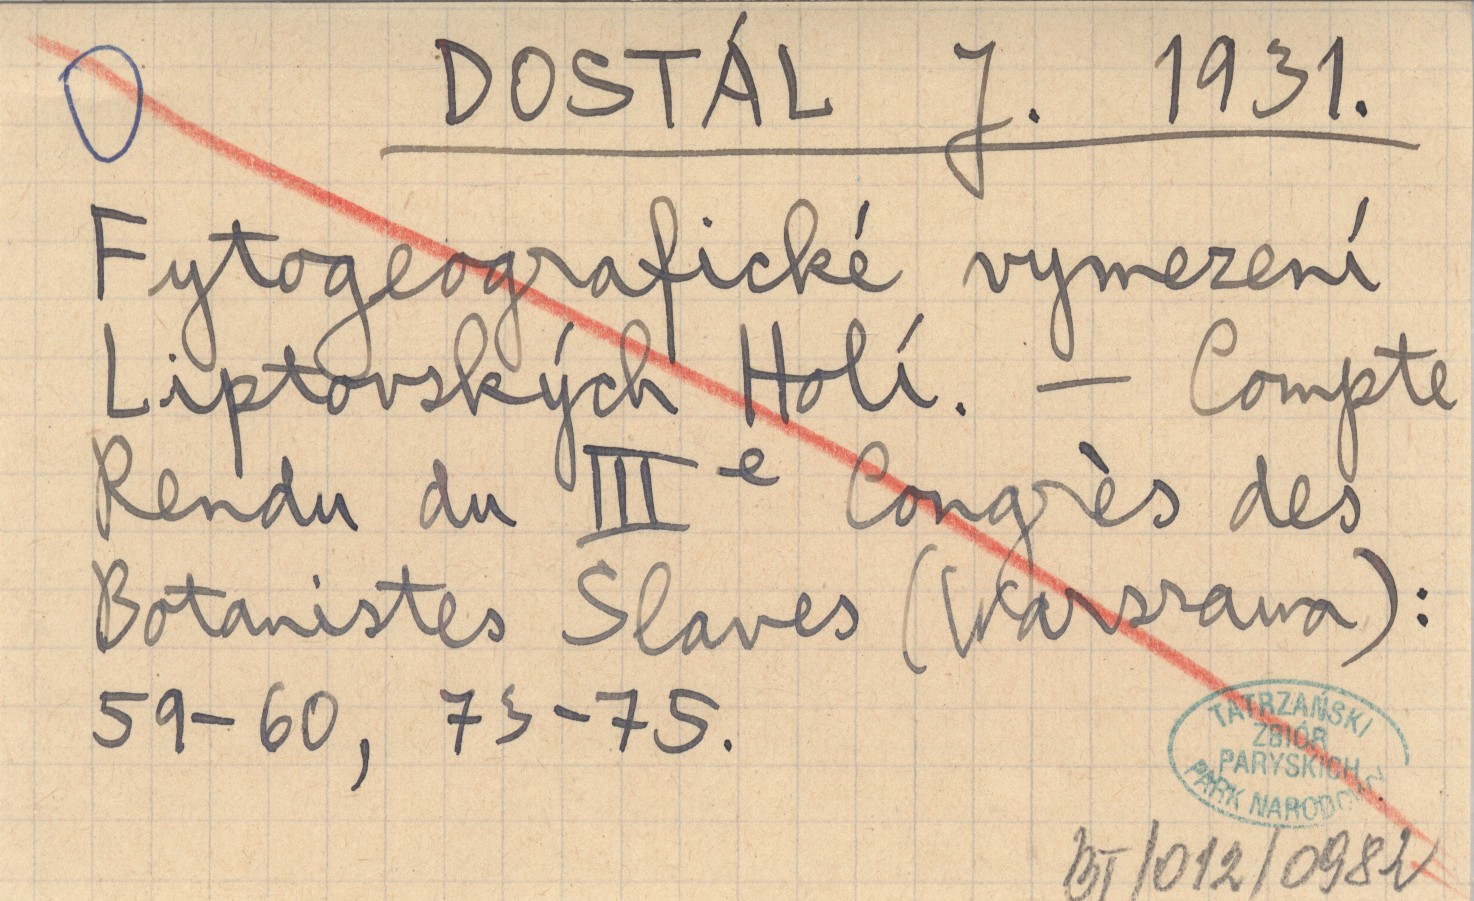 DOSTÁL J. 1931.
Fytogeografické vymezení
Liptovských Holí. — Compte
Rendu du IIIe Congrès des
Botanistes Slaves (Warszawa):
59-60, 73-75.
TATRZAŃSKI
ZBIÓR
PARYSKICH
PARK NARODOWY
BT/012/0982